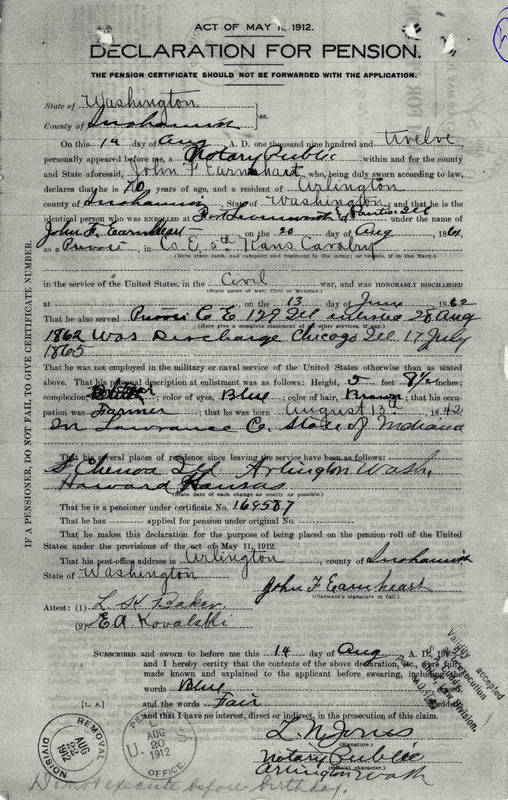 ACT OF MAY 11, 1912.
DECLARATION FOR PENSION.
THE PENSION CERTIFICATE SHOULD NOT BE FORWARDED WITH THE APPLICATION.
State of Washington
County of Snohomish } ss.
On this 14 day of Aug, A. D. one thousand nine hundred and twelve,
personally appeared before me, a Notary Public within and for the county
and State aforesaid, John F Earnheart, who, being duly sworn according to law,
declares that he is 70 years of age, and a resident of Arlington
county of Snohomish, State of Washington; and that he is the
identical person who was ENROLLED at Fort Levenworth & Pontiac Ill under the name of
John F. Earnheart, on the 20 day of Aug, 1861,
as a Private, in Co E, 5th Kans Cavalry
(Here state rank, and company and regiment in the Army, or vessel, if in the Navy.)
in the service of the United States, in the Civil war, and was HONORABLY DISCHARGED
(State name of war, Civil or Mexican.)
at, on the 13 day of June, 1862
That he also served Private Co E. 129 Ill enlisted 28 Aug
(Here give a complete statement of all other services, if any.)
1862 Was Discharge Chicago Ill. 17 July
1865
That he was not employed in the military or naval service of the United States otherwise than as stated
above. That his personal description at enlistment was as follows: Height, 5 feet 8½ inches;
complexion, Fair; color of eyes, Blue; color of hair, Brown; that his occu-
pation was Farmer; that he was born August 13th, 1842
In Lawrance Co. State of Indiana
That his several places of residence since leaving the service have been as follows:
Chenoa Ill Arlington Wash,
Harvard Kansas
(State date of each change as nearly as possible.)
That he is a pensioner under certificate No. 169587
That he has applied for pension under original No.
That he makes this declaration for the purpose of being placed on the pension roll of the United
States under the provisions of the act of May 11, 1912.
That his post-office address is Arlington, county of Snohomish
State of Washington
John F Earnheart
(Claimant's signature in full.)
Attest: (1) L. H. Baker,
(2) E. A. Kovalski
SUBSCRIBED and sworn to before me this 14 day of Aug, A. D., 19
and I hereby certify that the contents of the above declaration, etc., were fully
made known and explained to the applicant before swearing, including the
words Blue
[L. S.] and the words Fair added
and that I have no interest, direct or indirect, in the prosecution of this claim.
L. N. Jones
(Signature.)
Notary Public
(Official character.)
Arlington Wash
IF A PENSIONER, DO NOT FAIL TO GIVE CERTIFICATE NUMBER.
Validly accepted
execution
Law Division.
REMOVAL
AUG
1912
DIVISION
U. S.
AUG
20
1912
OFFICE
Did not execute before birthday.